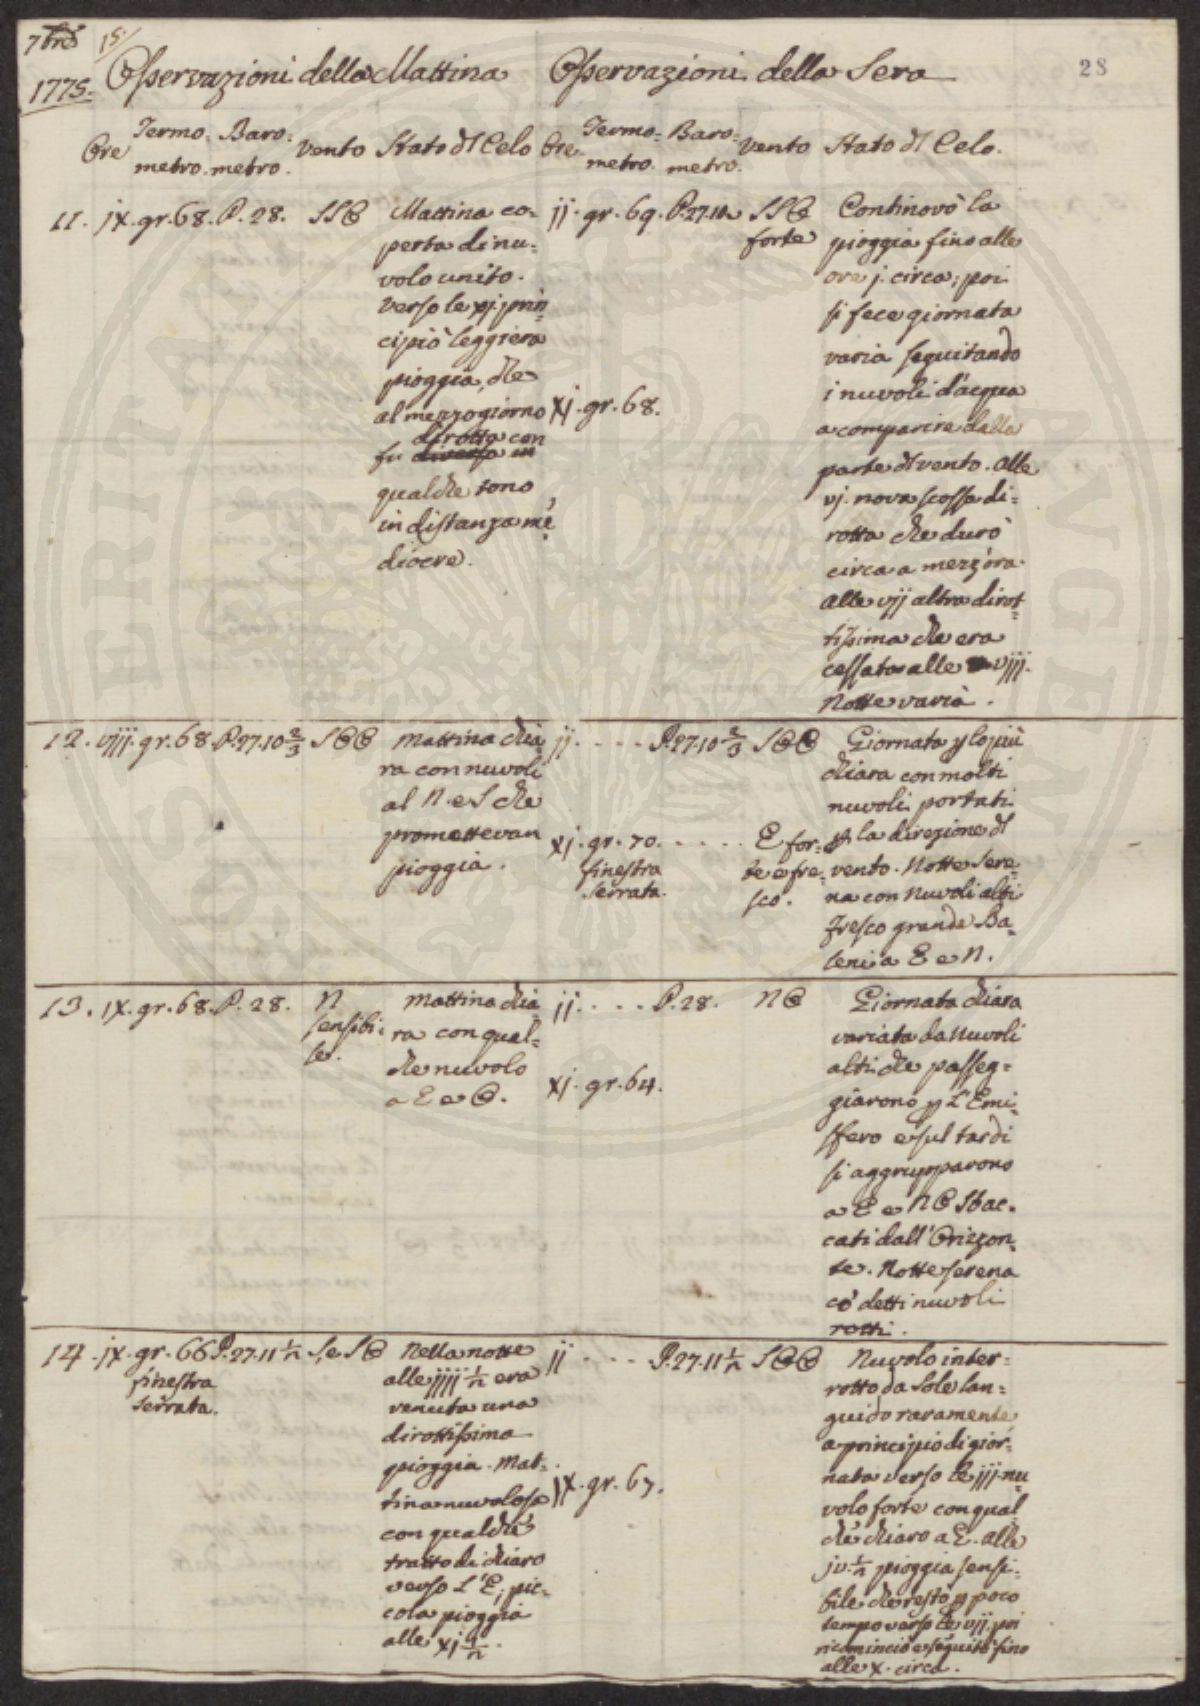 7bre 15.
1775. Osservazioni della Mattina Osservazioni della Sera 28
Ore Termo= metro. Baro= metro. Vento Stato dl Celo Ore Termo= metro. Baro= metro. Vento Stato dl Celo.
11. jx. gr. 68. P. 28. SSO
Mattina co=
perta di nu=
volo unito.
Verso le xj prin=
cipiò leggiera
pioggia, che
al mezzogiorno
dirotta con
fu diversa in
qualche tono
in distanza me=
diocre.
jj. gr. 69. P. 27.11 SSO
forte
xj. gr. 68.
Continovò la
pioggia fino alle
ore j. circa; poi
si fece giornata
varia seguitando
i nuvoli d'acqua
a comparire dalla
parte dl vento. Alle
vj. nova scossa di=
rotta che durò
circa a mezz'ora.
Alle vjj altra dirot=
tissima che era
cessata alle vjjj.
Notte varia.
12. vjjj. gr. 68. P. 27.10 2/3 SOO
Mattina chia=
ra con nuvoli
al N. e S che
promettevan
pioggia.
jj. . . . . P. 27.10 2/3 SOO
xj. gr. 70. . . . . . E for=
finestra te e fre=
serrata. sco.
Giornata p lo più
chiara con molti
nuvoli portati
p la direzione dl
vento. Notte Sere=
na con Nuvoli alti
Fresco grande Ba=
leni a E e N.
13. jx. gr. 68. P. 28. N
sensibi=
le.
Mattina chia=
ra con qual=
che nuvolo
a E e O.
jj. . . . . P. 28. NO
xj. gr. 64.
Giornata chiara
variata da Nuvoli
alti che passeg=
giarono p l'Emi=
sfero e sul tardi
si aggrupparono
a E e NO Stac=
cati dall'Orizzon=
te. Notte serena
cò detti nuvoli
rotti.
14. jx. gr. 66 P. 27.11 1/2 S, e SO
finestra
serrata.
Nella notte
alle jjjj 1/2 era
venuta una
dirottissima
pioggia. Mat=
tina nuvolosa
con qualche
tratto di chiaro
verso l'E, pic=
cola pioggia
alle xj 1/2.
jj . . . . P. 27.11 1/2 SOO
jx. gr. 67.
Nuvolo inter=
rotto da Sole lan=
guido raramente
a principio di gior=
nata verso le jjj nu=
volo forte con qual
chè chiaro a E. alle
jv. 1/2 pioggia sensi=
bile che restò p poco
tempo verso le vjj. poi
ricominciò e seguitò fino
alle x. circa.